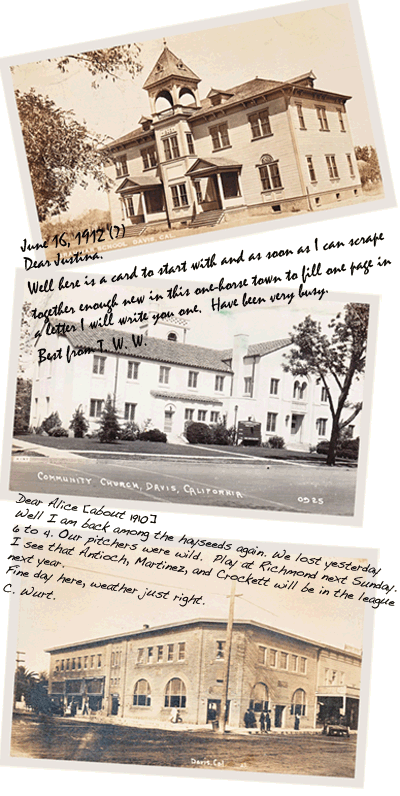 June 16, 1912 (?)
SCHOOL, DAVIS CAL
Dear Justina.
Well here is a card to start with and as soon as I can scrape
together enough new in this one-horse town to fill one page in
a letter I will write you one. Have been very busy.
Best from T. W. W.
COMMUNITY CHURCH, DAVIS, CALIFORNIA
0925
Dear Alice [about 1910]
Well I am back among the hayseeds again. We lost yesterday
6 to 4. Our pitchers were wild. Play at Richmond next Sunday.
I see that Antioch, Martinez, and Crockett will be in the league
next year.
Fine day here, weather just right.
C. Wurt.
Davis. Cal